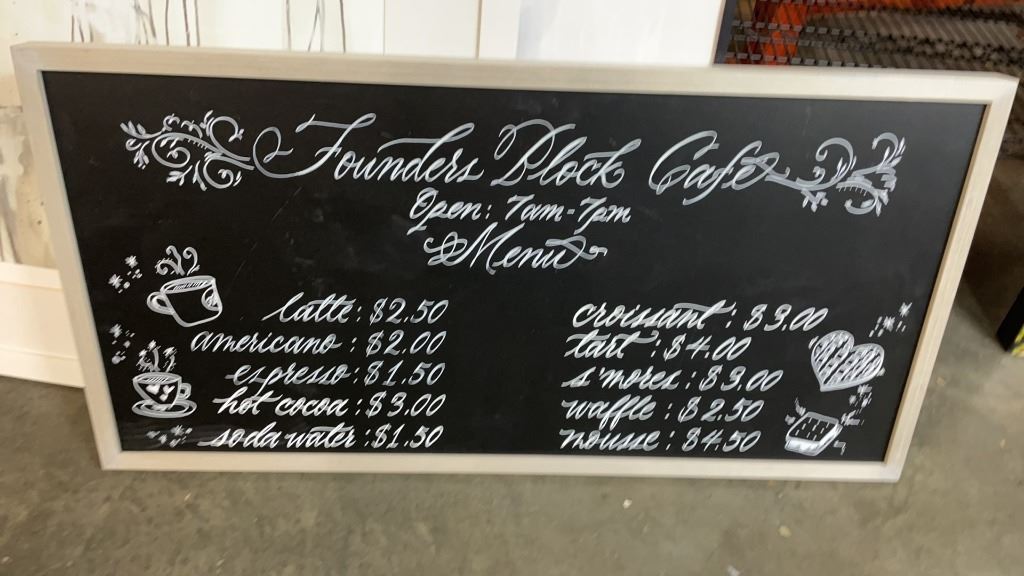 Founders Block Cafe
Open: 7am-7pm
Menu
latte: $2.50
americano: $2.00
espresso: $1.50
hot cocoa: $3.00
soda water: $1.50
croissant: $3.00
tart: $4.00
s'mores: $3.00
waffle: $2.50
mousse: $4.50